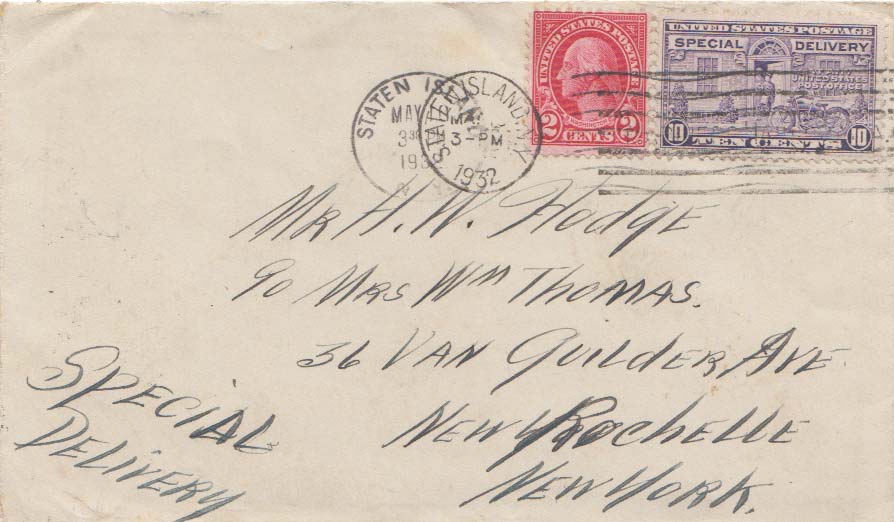 UNITED STATES POSTAGE
2 CENTS 2
UNITED STATES POSTAGE
SPECIAL DELIVERY
UNITED STATES
POST OFFICE
10 TEN CENTS 10
STATEN ISLAND
MAY
3 30
1932
STATEN ISLAND, N.Y.
MAY
3-PM
1932
Mr H. W. Hodge
c/o Mrs Wm Thomas.
36 Van Guilder Ave.
New Rochelle
New York.
Special
Delivery